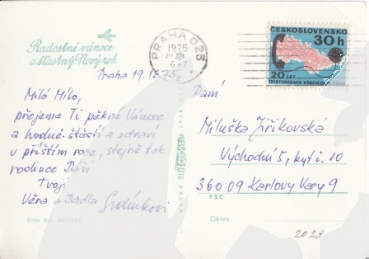 Radostné vánoce
a šťastný Nový rok
Praha 19. XII. 75
Milá Milo,
přejeme Ti pěkné Vánoce
a hodně štěstí a zdraví
v příštím roce, stejně tak
rodince Dáši
Tvoji
Věna a Vlasta
PRAHA 025
1975
ČESKOSLOVENSKO
30 h
20 LET
Paní
Miluška Jiříkovská
Východní 5, byt č. 10
360 09 Karlovy Vary 9
PSČ
Okres:
2028